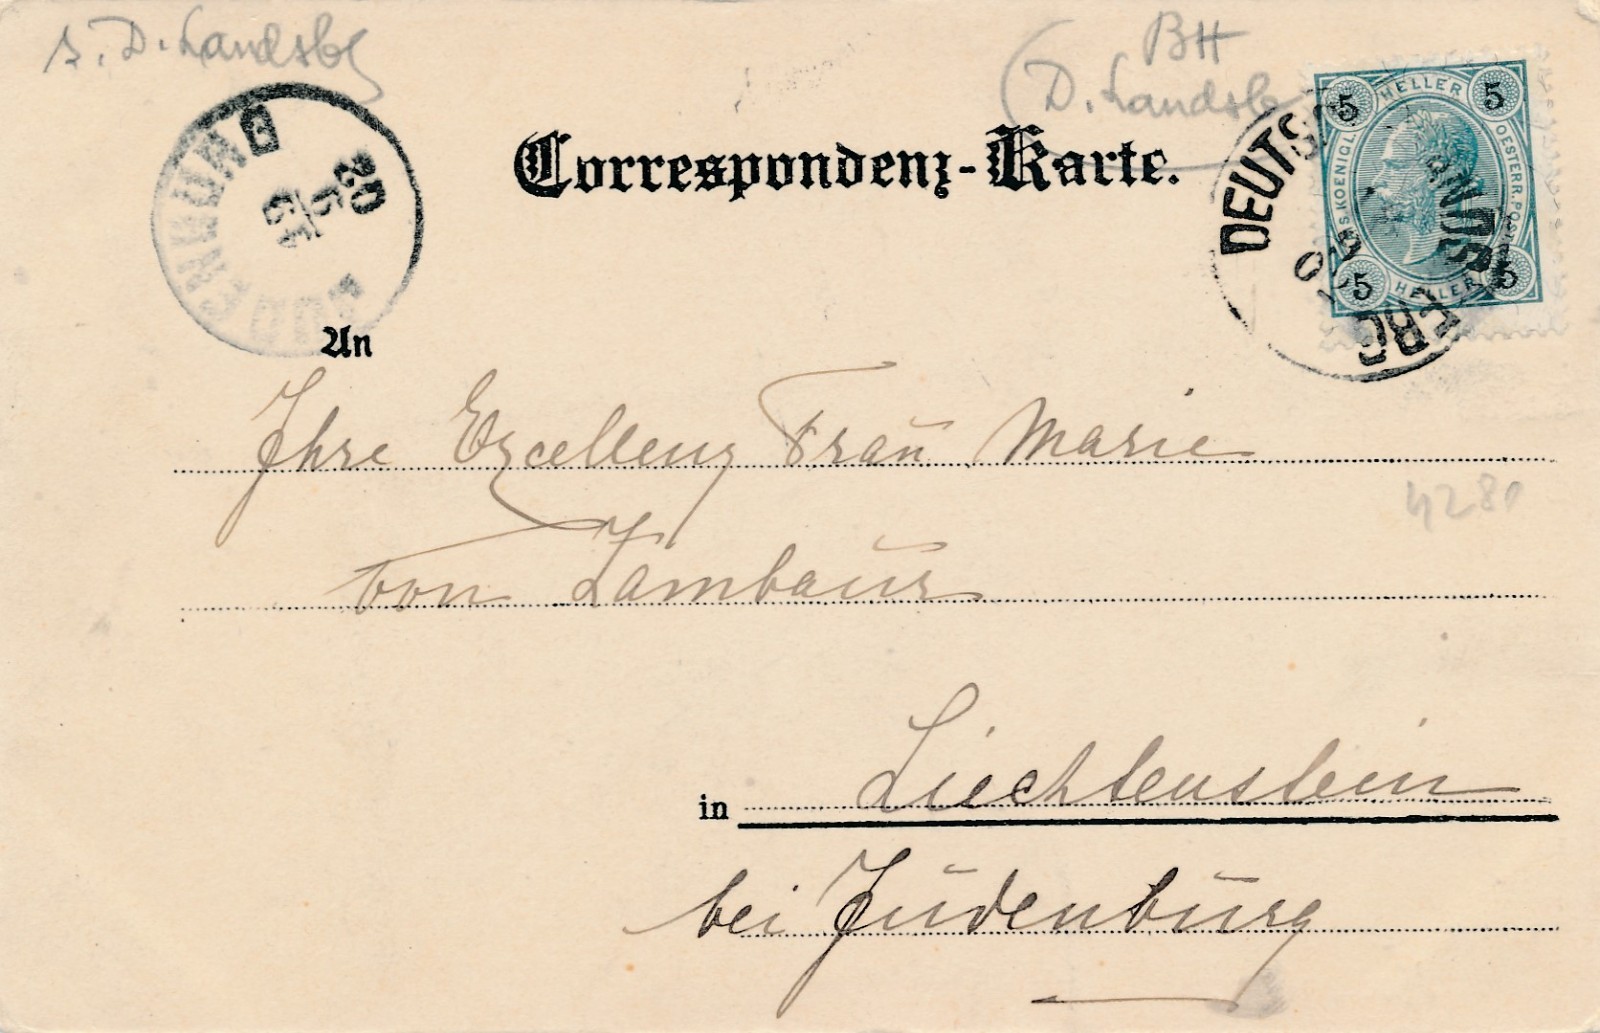 s. D. Landsbg
BH
(D. Landsbg
Correspondenz-Karte.
5 HELLER 5
S.KOENIGL.
OESTERR.POST
5 HELLER 5
DEUTSCH
LANDSBERG
JUDENBURG
20
6
An
Ihre Exzellenz Frau Marie
von Zambaur
4280
in Liechtenstein
bei Judenburg